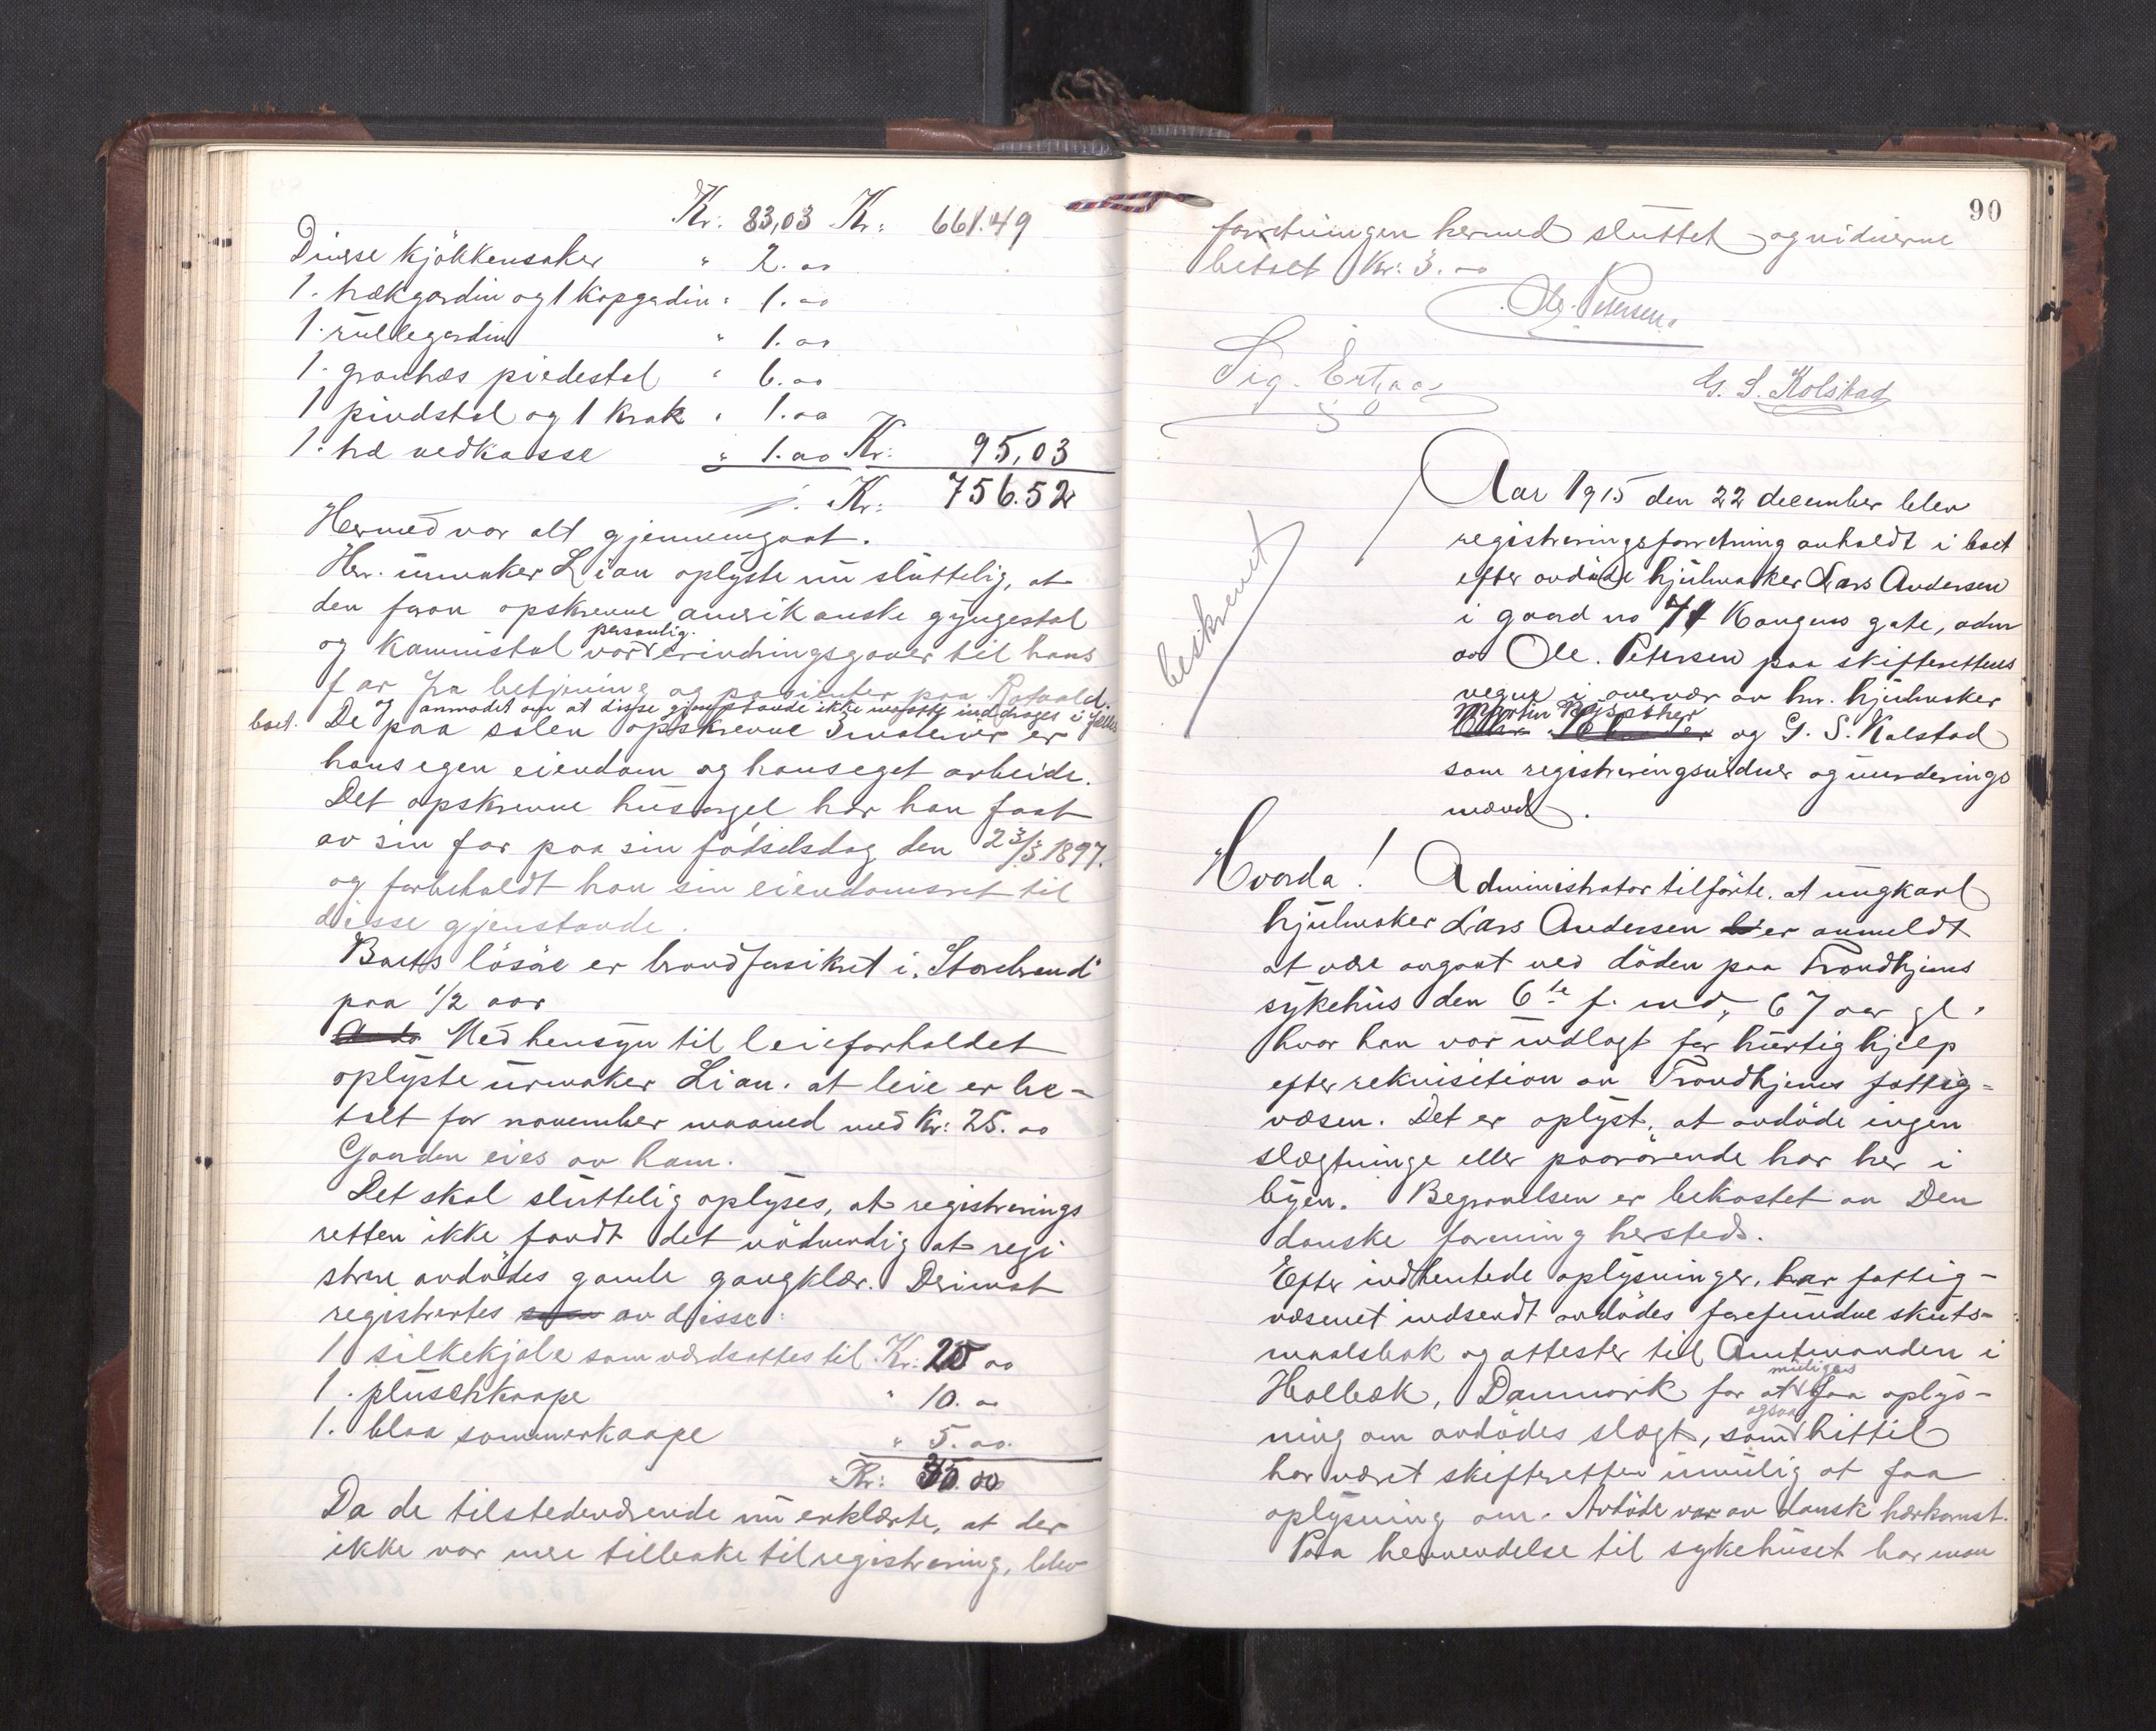 Kr: 83,03 Kr: 661.49
Diverse kjökkensaker " 2.00
1. trækgardin og 1 kapgardin " 1.00
1. rullegardin " 1.00
1. pidestal " 6.00
1 pindstol og 1 krak " 1.00
1. vedkasse " 1.00 Kr: 95,03
Kr: 756.52
Hermed var alt gjennemgaat.
Hr. urmaker Lian oplyste nu sluttelig, at
den foran opskrevne amerikanske gyngestol
og kaminstol var personlig erindringsgaver til hans
far fra betjening og pasienter paa Rotvold.
anmodet om at disse gjenstande ikke maatte inddrages i fælles
boet. De paa salen opskrevne 3 malerier er
hans egen eiendom og hans eget arbeide.
Det opskrevne husorgel har han faat
av sin far paa sin födselsdag den 23/3 1897.
og forbeholdt han sin eiendomsret til
disse gjenstande.
Boets lösöre er brandforsikret i "Storebrand"
paa 1/2 aar
Med hensyn til leieforholdet
oplyste urmaker Lian. at leie er be-
talt for november maaned med Kr: 25.00
Gaarden eies av ham.
Det skal sluttelig oplyses, at registrerings
retten ikke fandt det nödvendig at regi
strere avdödes gamle gangklær. Derimot
registrertes av disse:
1 silkekjole som værdsattes til Kr: 20 00
1. pluschkaape " 10.00
1. blaa sommerkaape " 5.00.
Kr: 35.00
Da de tilstedeværende nu erklærte, at der
ikke var mere tilbake til registrering, blev
90
forretningen hermed sluttet og vidnerne
betalt Kr: 3.00
Ole Petersen.
Sig.
G. S. Kolstad
beskrevet
Aar 1915 den 22 december blev
registreringsforretning avholdt i boet
efter avdöde hjulmaker Lars Andersen
i gaard no 71 Kongens gate, adm
av Ole. Petersen paa skifterettens
vegne i overvær av hr. hjulmaker
Martin
og G. S. Kolstad
som registreringsvidner og vurderings
mænd.
Hvorda! Administrator tilförte. at ungkarl
hjulmaker Lars Andersen er anmeldt
at være avgaat ved döden paa Trondhjems
sykehus den 6te f. md, 67 aar gl.
hvor han var indlagt for hurtig hjelp
efter rekvisition av Trondhjems fattig-
væsen. Det er oplyst, at avdöde ingen
slægtninge eller paarörende har her i
byen. Begravelsen er bekostet av Den
danske forening hersteds.
Efter indhentede oplysninger, har fattig-
væsenet indsendt avdödes forefundne skuts-
maalsbok og attester til Amtmanden i
Holbæk, Danmark for at muligens faa oplys-
ning om avdödes slægt, som ogsaa hittil
har været skifteretten umulig at faa
oplysning om. Avdöde var av dansk herkomst.
Paa henvendelse til sykehuset har man